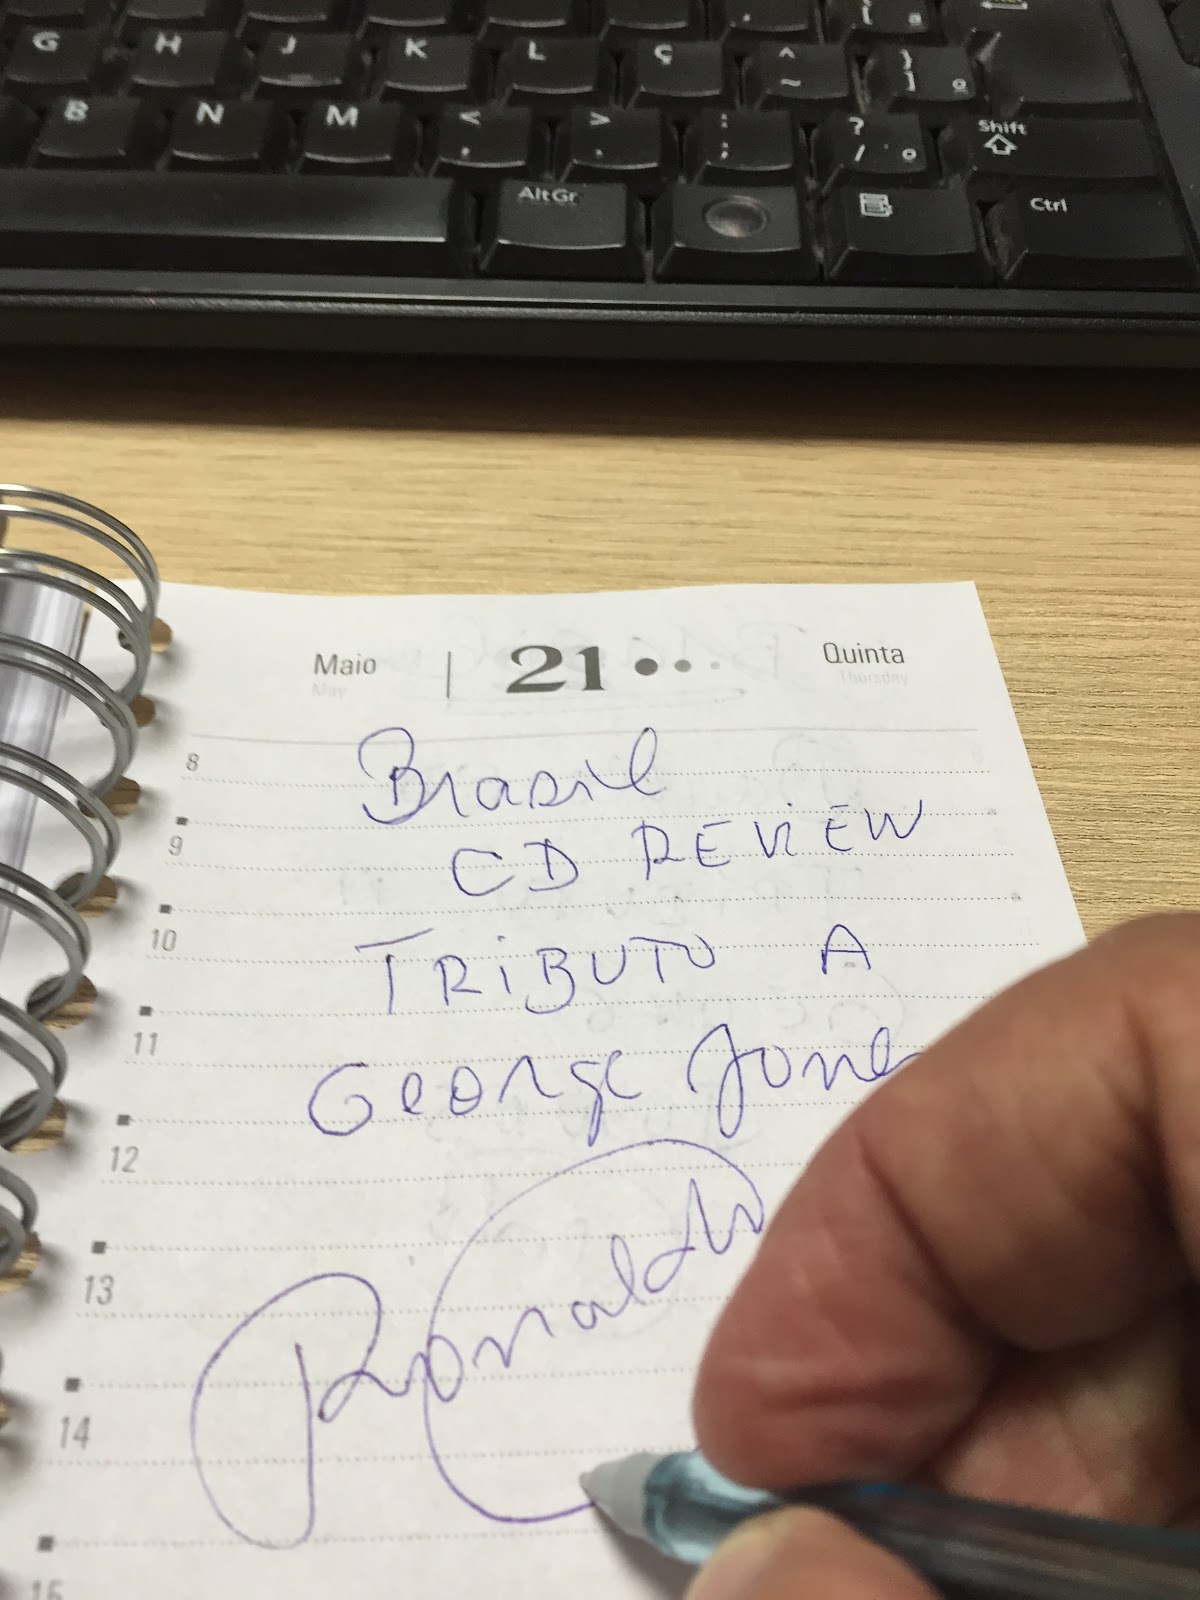 [ a
G H J K L Ç ^ ~ } ] º
B N M < , > . : ; ? / ° Shift
AltGr Ctrl
Maio 21 Quinta
May Thursday
8 Brasil
9 CD REViEW
10 TRiBUTO A
11 George Jones
12
13 Ronaldo
14
15